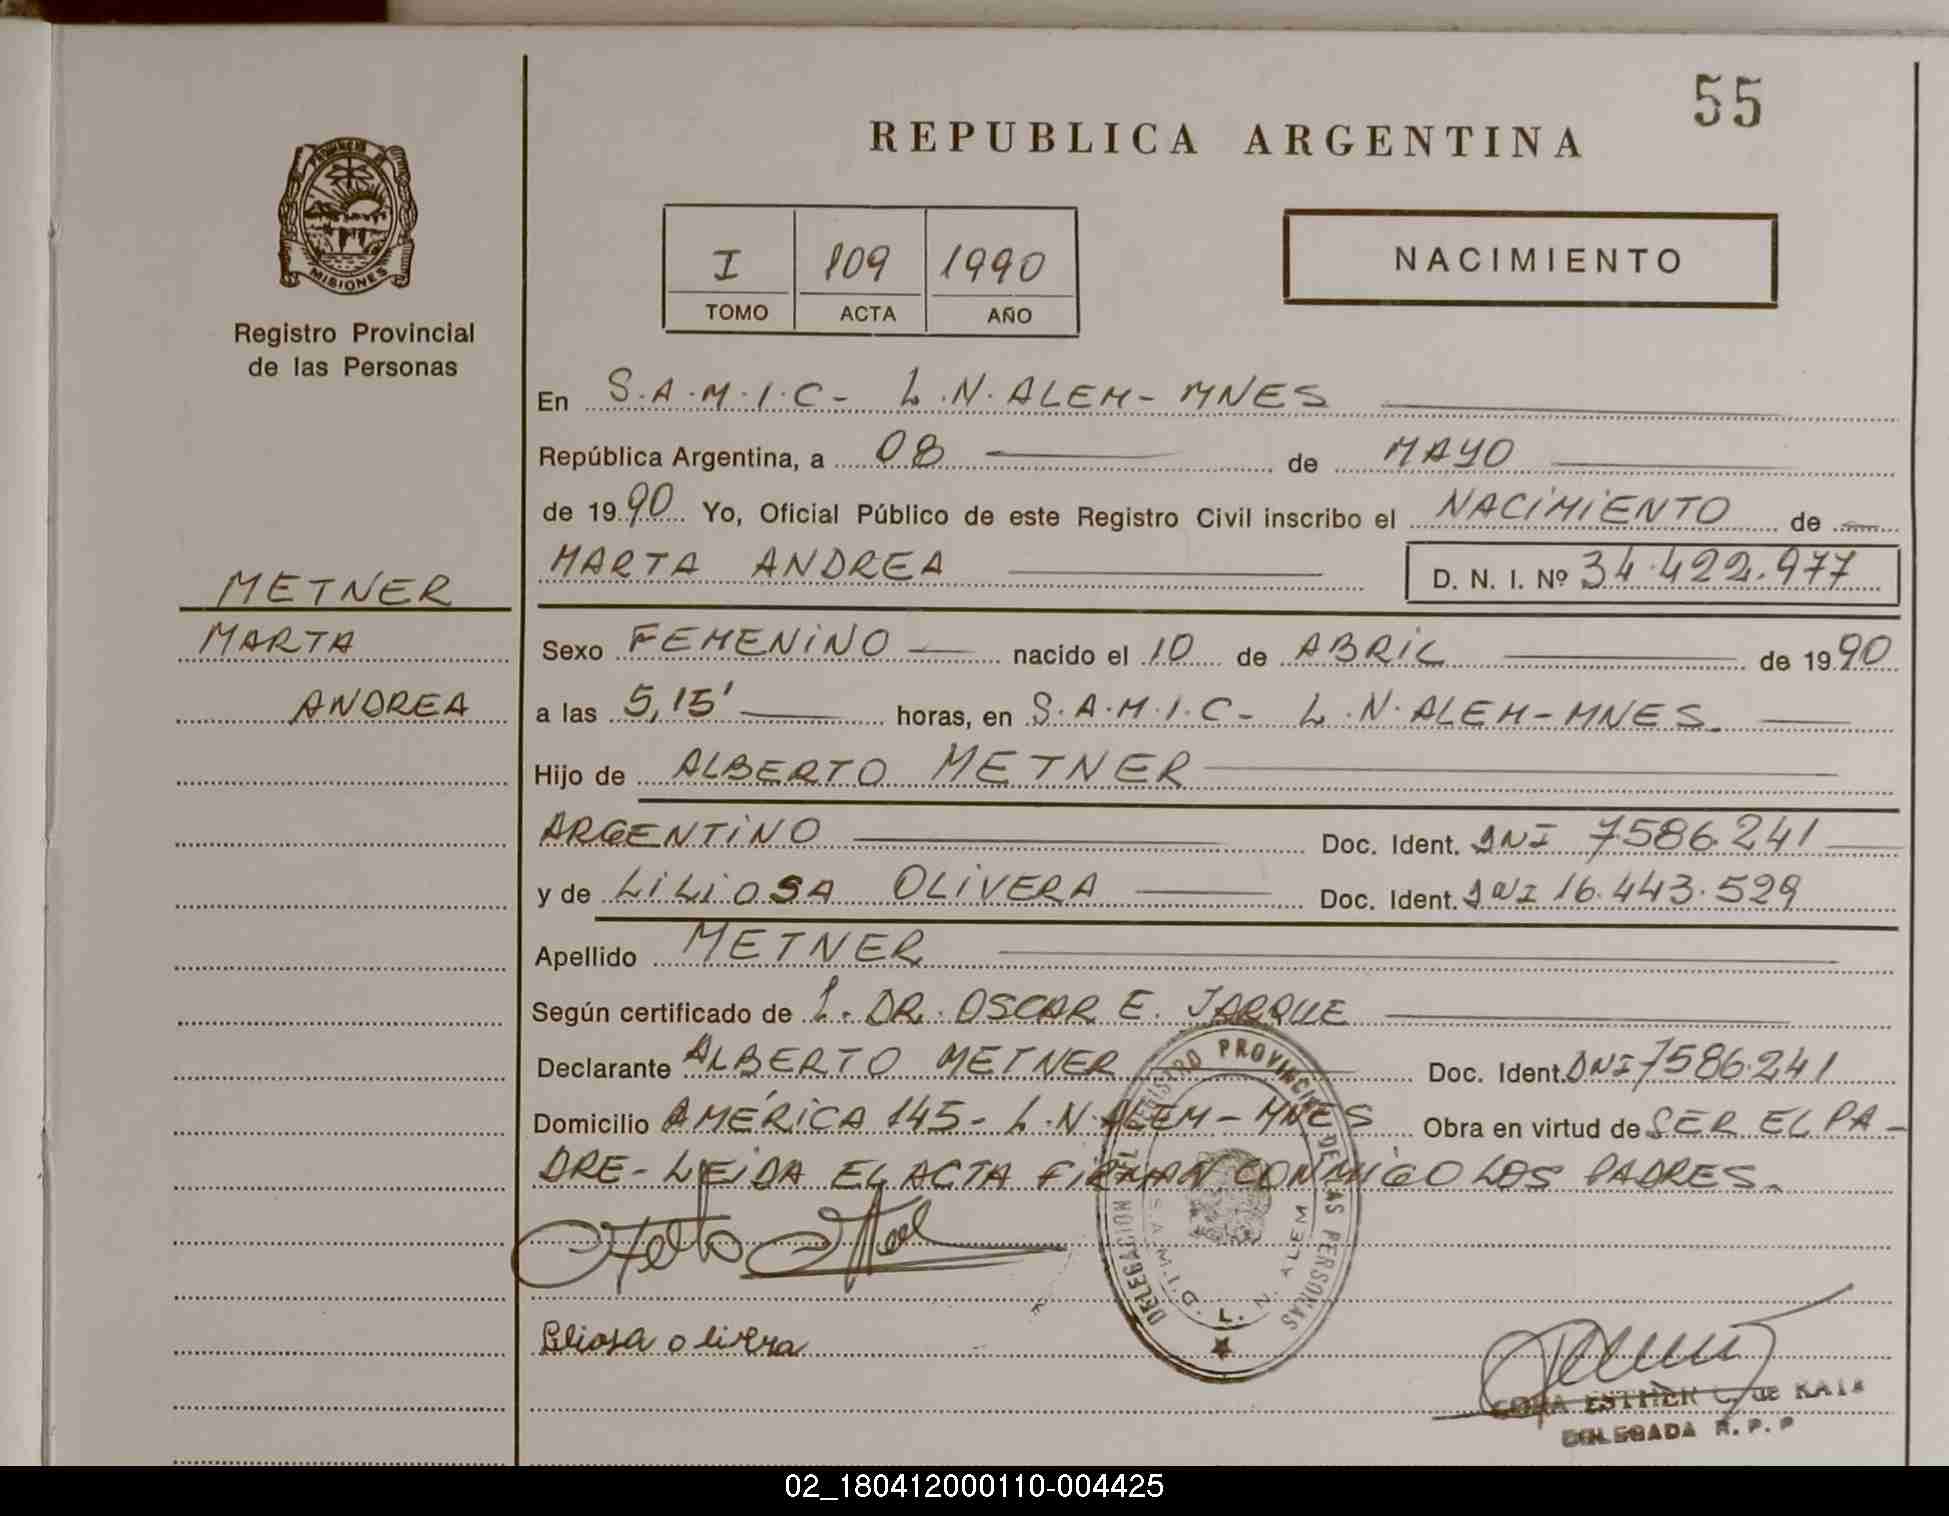 55
REPUBLICA ARGENTINA
PROVINCIA DE
MISIONES
Registro Provincial
de las Personas
I 109 1990
TOMO ACTA AÑO
NACIMIENTO
En S.A.M.I.C- L.N.ALEM-MNES
República Argentina, a 08 de MAYO
de 1990 Yo, Oficial Público de este Registro Civil inscribo el NACIMIENTO de
MARTA ANDREA D. N. I. Nº 34.422.977
METNER
MARTA
ANDREA
Sexo FEMENINO nacido el 10 de ABRIL de 1990
a las 5,15' horas, en S.A.M.I.C- L.N.ALEM-MNES.
Hijo de ALBERTO METNER
ARGENTINO Doc. Ident. DNI 7586.241
y de LILIOSA OLIVERA Doc. Ident. DNI 16.443.529
Apellido METNER
Según certificado de 1. DR. OSCAR E. JARQUE
Declarante ALBERTO METNER Doc. Ident. DNI 7586.241
Domicilio AMÉRICA 145- L.N.ALEM-MNES Obra en virtud de SER EL PA-
DRE- LEIDA EL ACTA FIRMAN CONMIGO LOS PADRES.
DELEGACION DEL REGISTRO PROVINCIAL DE LAS PERSONAS
L. N. ALEM
Liliosa olivera
ESTHER C. de
DELEGADA R. P. P
02_180412000110-004425